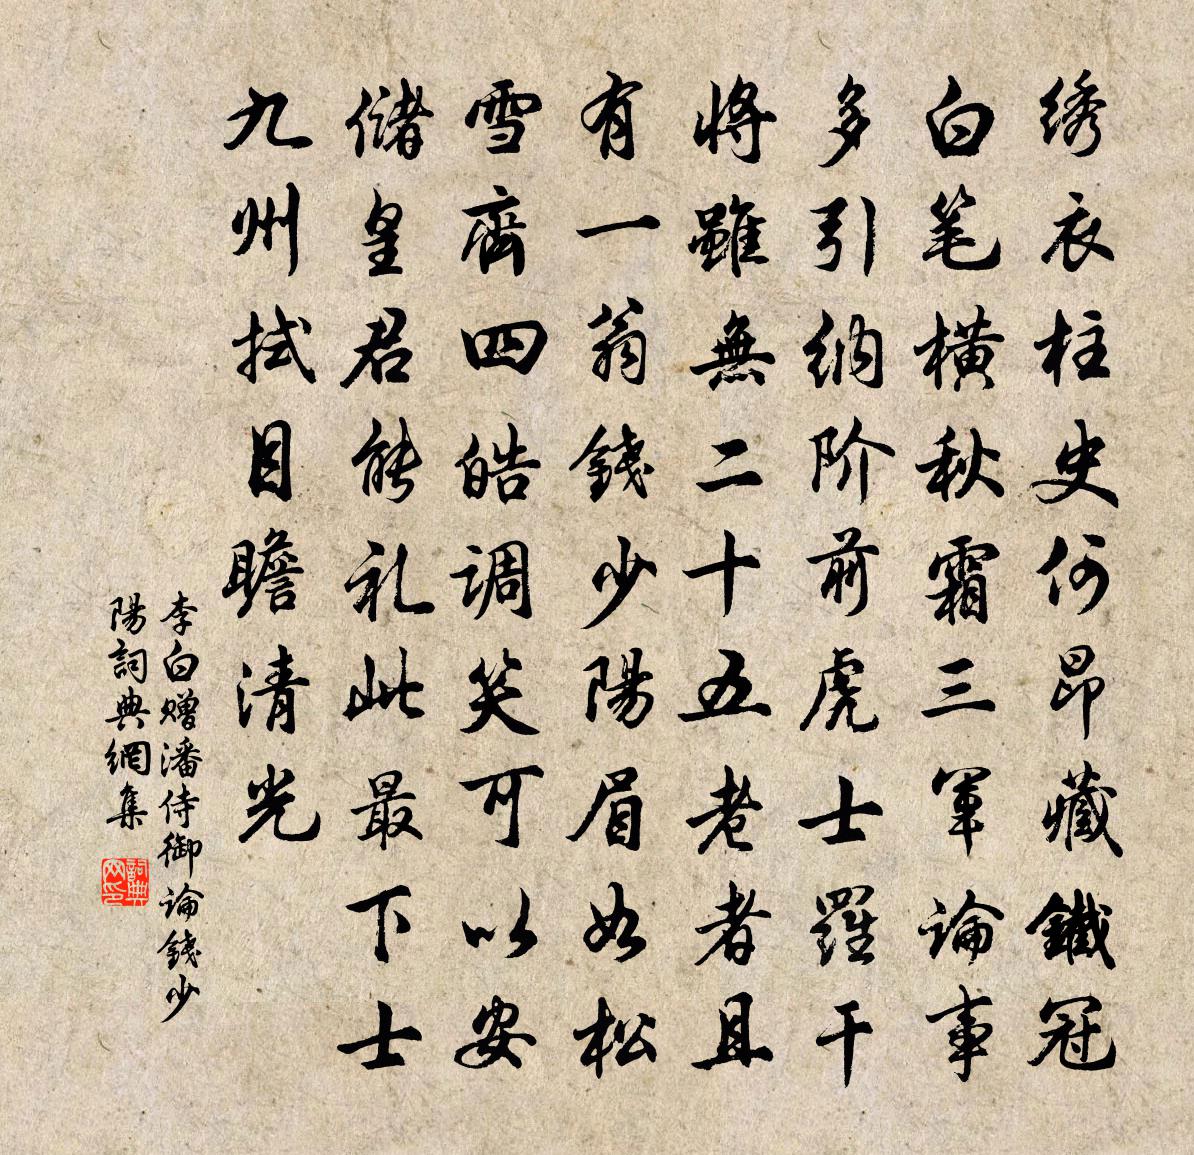 绣衣柱史何昂藏鐵冠
白笔横秋霜三军論事
多引纳阶前虎士羅干
將雖無二十五老者且
有一翁錢少陽眉如松
雪齊四皓調笑可以安
儲皇君能礼此最下士
九州拭目瞻清光
李白赠潘侍御論錢少
陽詞典網集
詞典网印